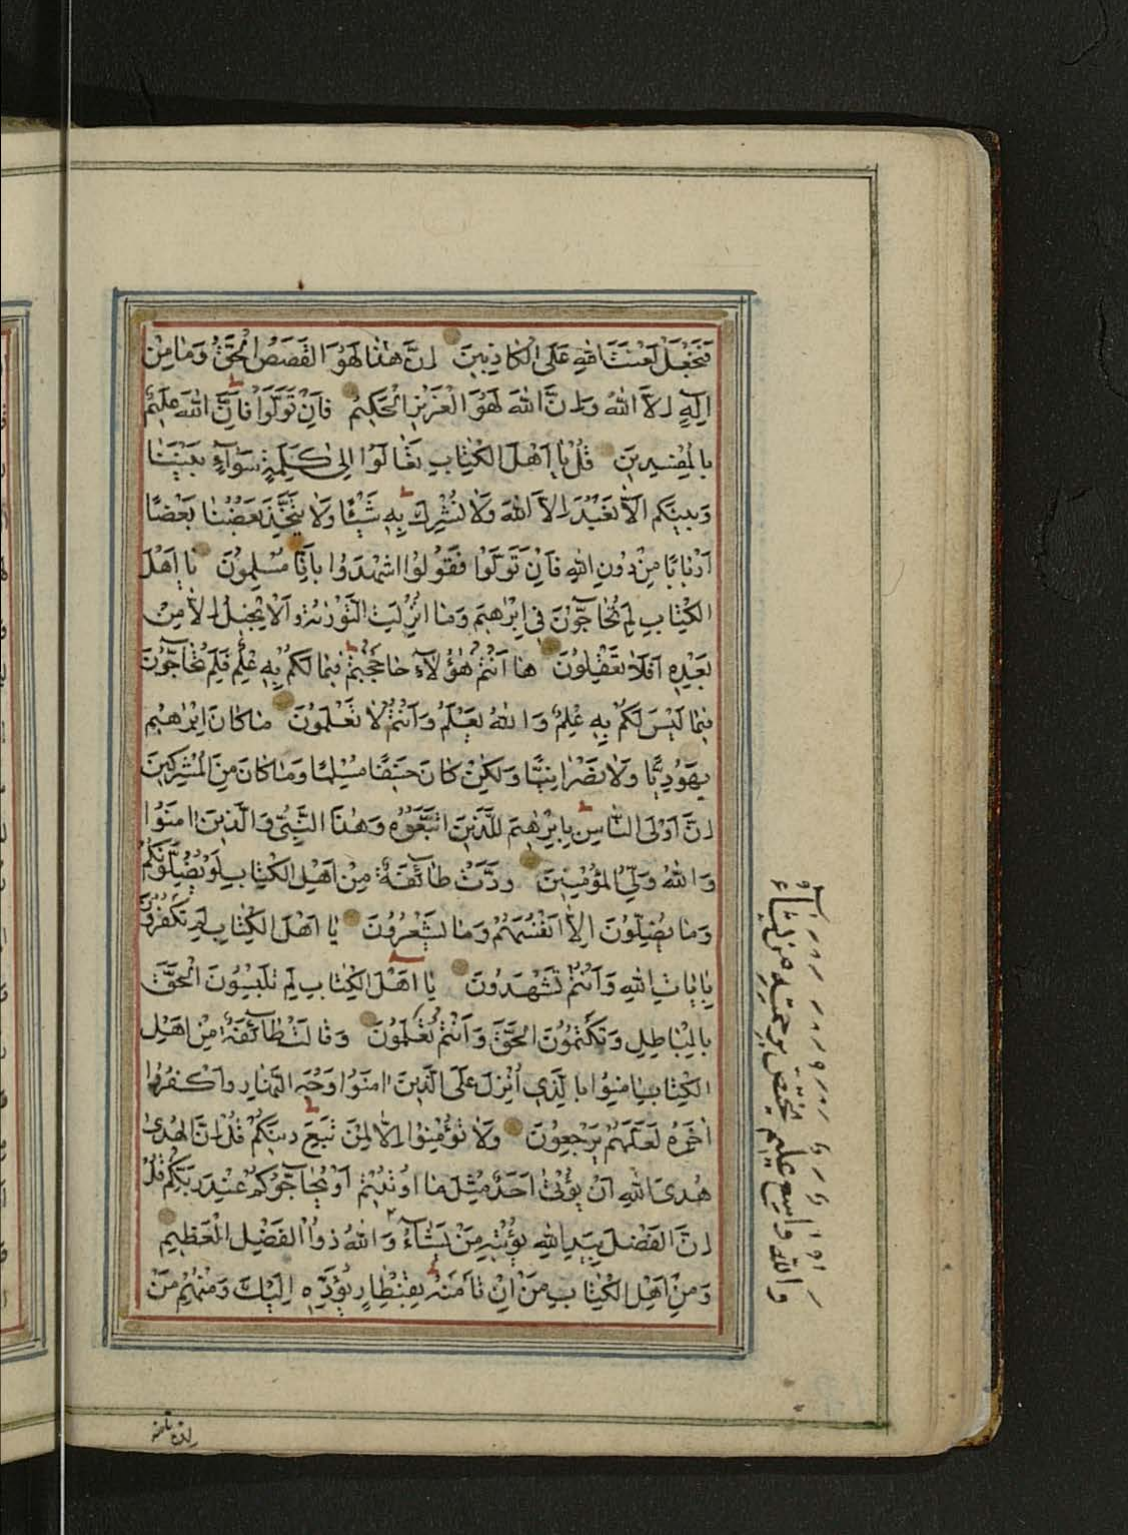 فَنَجْعَلْ لَعْنَتَ اللهِ عَلَى الْكَاذِبِينَ اِنَّ هٰذَا لَهُوَ الْقَصَصُ الْحَقُّ وَمَا مِنْ
اِلٰهٍ اِلَّا اللهُ وَاِنَّ اللهَ لَهُوَ الْعَزِيزُ الْحَكِيمُ فَاِنْ تَوَلَّوْا فَاِنَّ اللهَ عَلِيمٌ
بِالْمُفْسِدِينَ قُلْ يَا اَهْلَ الْكِتَابِ تَعَالَوْا اِلٰى كَلِمَةٍ سَوَآءٍ بَيْنَنَا
وَبَيْنَكُمْ اَلَّا نَعْبُدَ اِلَّا اللهَ وَلَا نُشْرِكَ بِهِ شَيْئًا وَلَا يَتَّخِذَ بَعْضُنَا بَعْضًا
اَرْبَابًا مِنْ دُونِ اللهِ فَاِنْ تَوَلَّوْا فَقُولُوا اشْهَدُوا بِاَنَّا مُسْلِمُونَ يَا اَهْلَ
الْكِتَابِ لِمَ تُحَاجُّونَ فِي اِبْرٰهِيمَ وَمَا اُنْزِلَتِ التَّوْرٰيةُ وَالْاِنْجِيلُ اِلَّا مِنْ
بَعْدِهِ اَفَلَا تَعْقِلُونَ هَا اَنْتُمْ هٰؤُلَآءِ حَاجَجْتُمْ فِيمَا لَكُمْ بِهِ عِلْمٌ فَلِمَ تُحَاجُّونَ
فِيمَا لَيْسَ لَكُمْ بِهِ عِلْمٌ وَاللهُ يَعْلَمُ وَاَنْتُمْ لَا تَعْلَمُونَ مَا كَانَ اِبْرٰهِيمُ
يَهُودِيًّا وَلَا نَصْرَانِيًّا وَلٰكِنْ كَانَ حَنِيفًا مُسْلِمًا وَمَا كَانَ مِنَ الْمُشْرِكِينَ
اِنَّ اَوْلَى النَّاسِ بِاِبْرٰهِيمَ لَلَّذِينَ اتَّبَعُوهُ وَهٰذَا النَّبِيُّ وَالَّذِينَ اٰمَنُوا
وَاللهُ وَلِيُّ الْمُؤْمِنِينَ وَدَّتْ طَآئِفَةٌ مِنْ اَهْلِ الْكِتَابِ لَوْ يُضِلُّونَكُمْ
وَمَا يُضِلُّونَ اِلَّا اَنْفُسَهُمْ وَمَا يَشْعُرُونَ يَا اَهْلَ الْكِتَابِ لِمَ تَكْفُرُونَ
بِاٰيَاتِ اللهِ وَاَنْتُمْ تَشْهَدُونَ يَا اَهْلَ الْكِتَابِ لِمَ تَلْبِسُونَ الْحَقَّ
بِالْبَاطِلِ وَتَكْتُمُونَ الْحَقَّ وَاَنْتُمْ تَعْلَمُونَ وَقَالَتْ طَآئِفَةٌ مِنْ اَهْلِ
الْكِتَابِ اٰمِنُوا بِالَّذِي اُنْزِلَ عَلَى الَّذِينَ اٰمَنُوا وَجْهَ النَّهَارِ وَاكْفُرُوا
اٰخِرَهُ لَعَلَّهُمْ يَرْجِعُونَ وَلَا تُؤْمِنُوا اِلَّا لِمَنْ تَبِعَ دِينَكُمْ قُلْ اِنَّ الْهُدٰى
هُدَى اللهِ اَنْ يُؤْتٰى اَحَدٌ مِثْلَ مَا اُوتِيتُمْ اَوْ يُحَاجُّوكُمْ عِنْدَ رَبِّكُمْ قُلْ
اِنَّ الْفَضْلَ بِيَدِ اللهِ يُؤْتِيهِ مَنْ يَشَآءُ وَاللهُ ذُو الْفَضْلِ الْعَظِيمِ
وَمِنْ اَهْلِ الْكِتَابِ مَنْ اِنْ تَأْمَنْهُ بِقِنْطَارٍ يُؤَدِّهِ اِلَيْكَ وَمِنْهُمْ مَنْ
وَاللهُ وَاسِعٌ عَلِيمٌ يَخْتَصُّ بِرَحْمَتِهِ مَنْ يَشَآءُ
اِنْ تَأْمَنْهُ